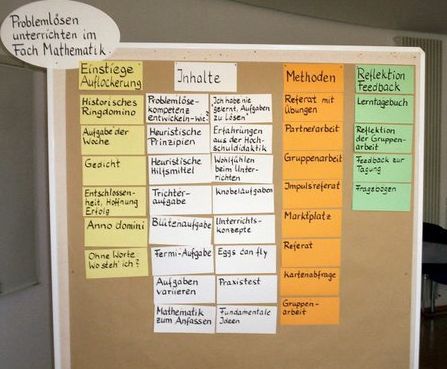 Problemlösen
unterrichten im
Fach Mathematik
Einstiege
Auflockerung
Historisches
Ringdomino
Aufgabe der
Woche
Gedicht
Entschlossen-
heit, Hoffnung
Erfolg
Anno domini
Ohne Worte
Wo steh' ich?
Inhalte
Problemlöse-
kompetenz
entwickeln-wie?
Heuristische
Prinzipien
Heuristische
Hilfsmittel
Trichter-
aufgabe
Blütenaufgabe
Fermi-Aufgabe
Aufgaben
variieren
Mathematik
zum Anfassen
„Ich habe nie
gelernt, Aufgaben
zu lösen"
Erfahrungen
aus der Hoch-
schuldidaktik
Wohlfühlen
beim Unter-
richten
Knobelaufgaben
Unterrichts-
konzepte
Eggs can fly
Praxistest
Fundamentale
Ideen
Methoden
Referat mit
Übungen
Partnerarbeit
Gruppenarbeit
Impulsreferat
Marktplatz
Referat
Kartenabfrage
Gruppen-
arbeit
Reflektion
Feedback
Lerntagebuch
Reflektion
der Gruppen-
arbeit
Feedback zur
Tagung
Fragebogen